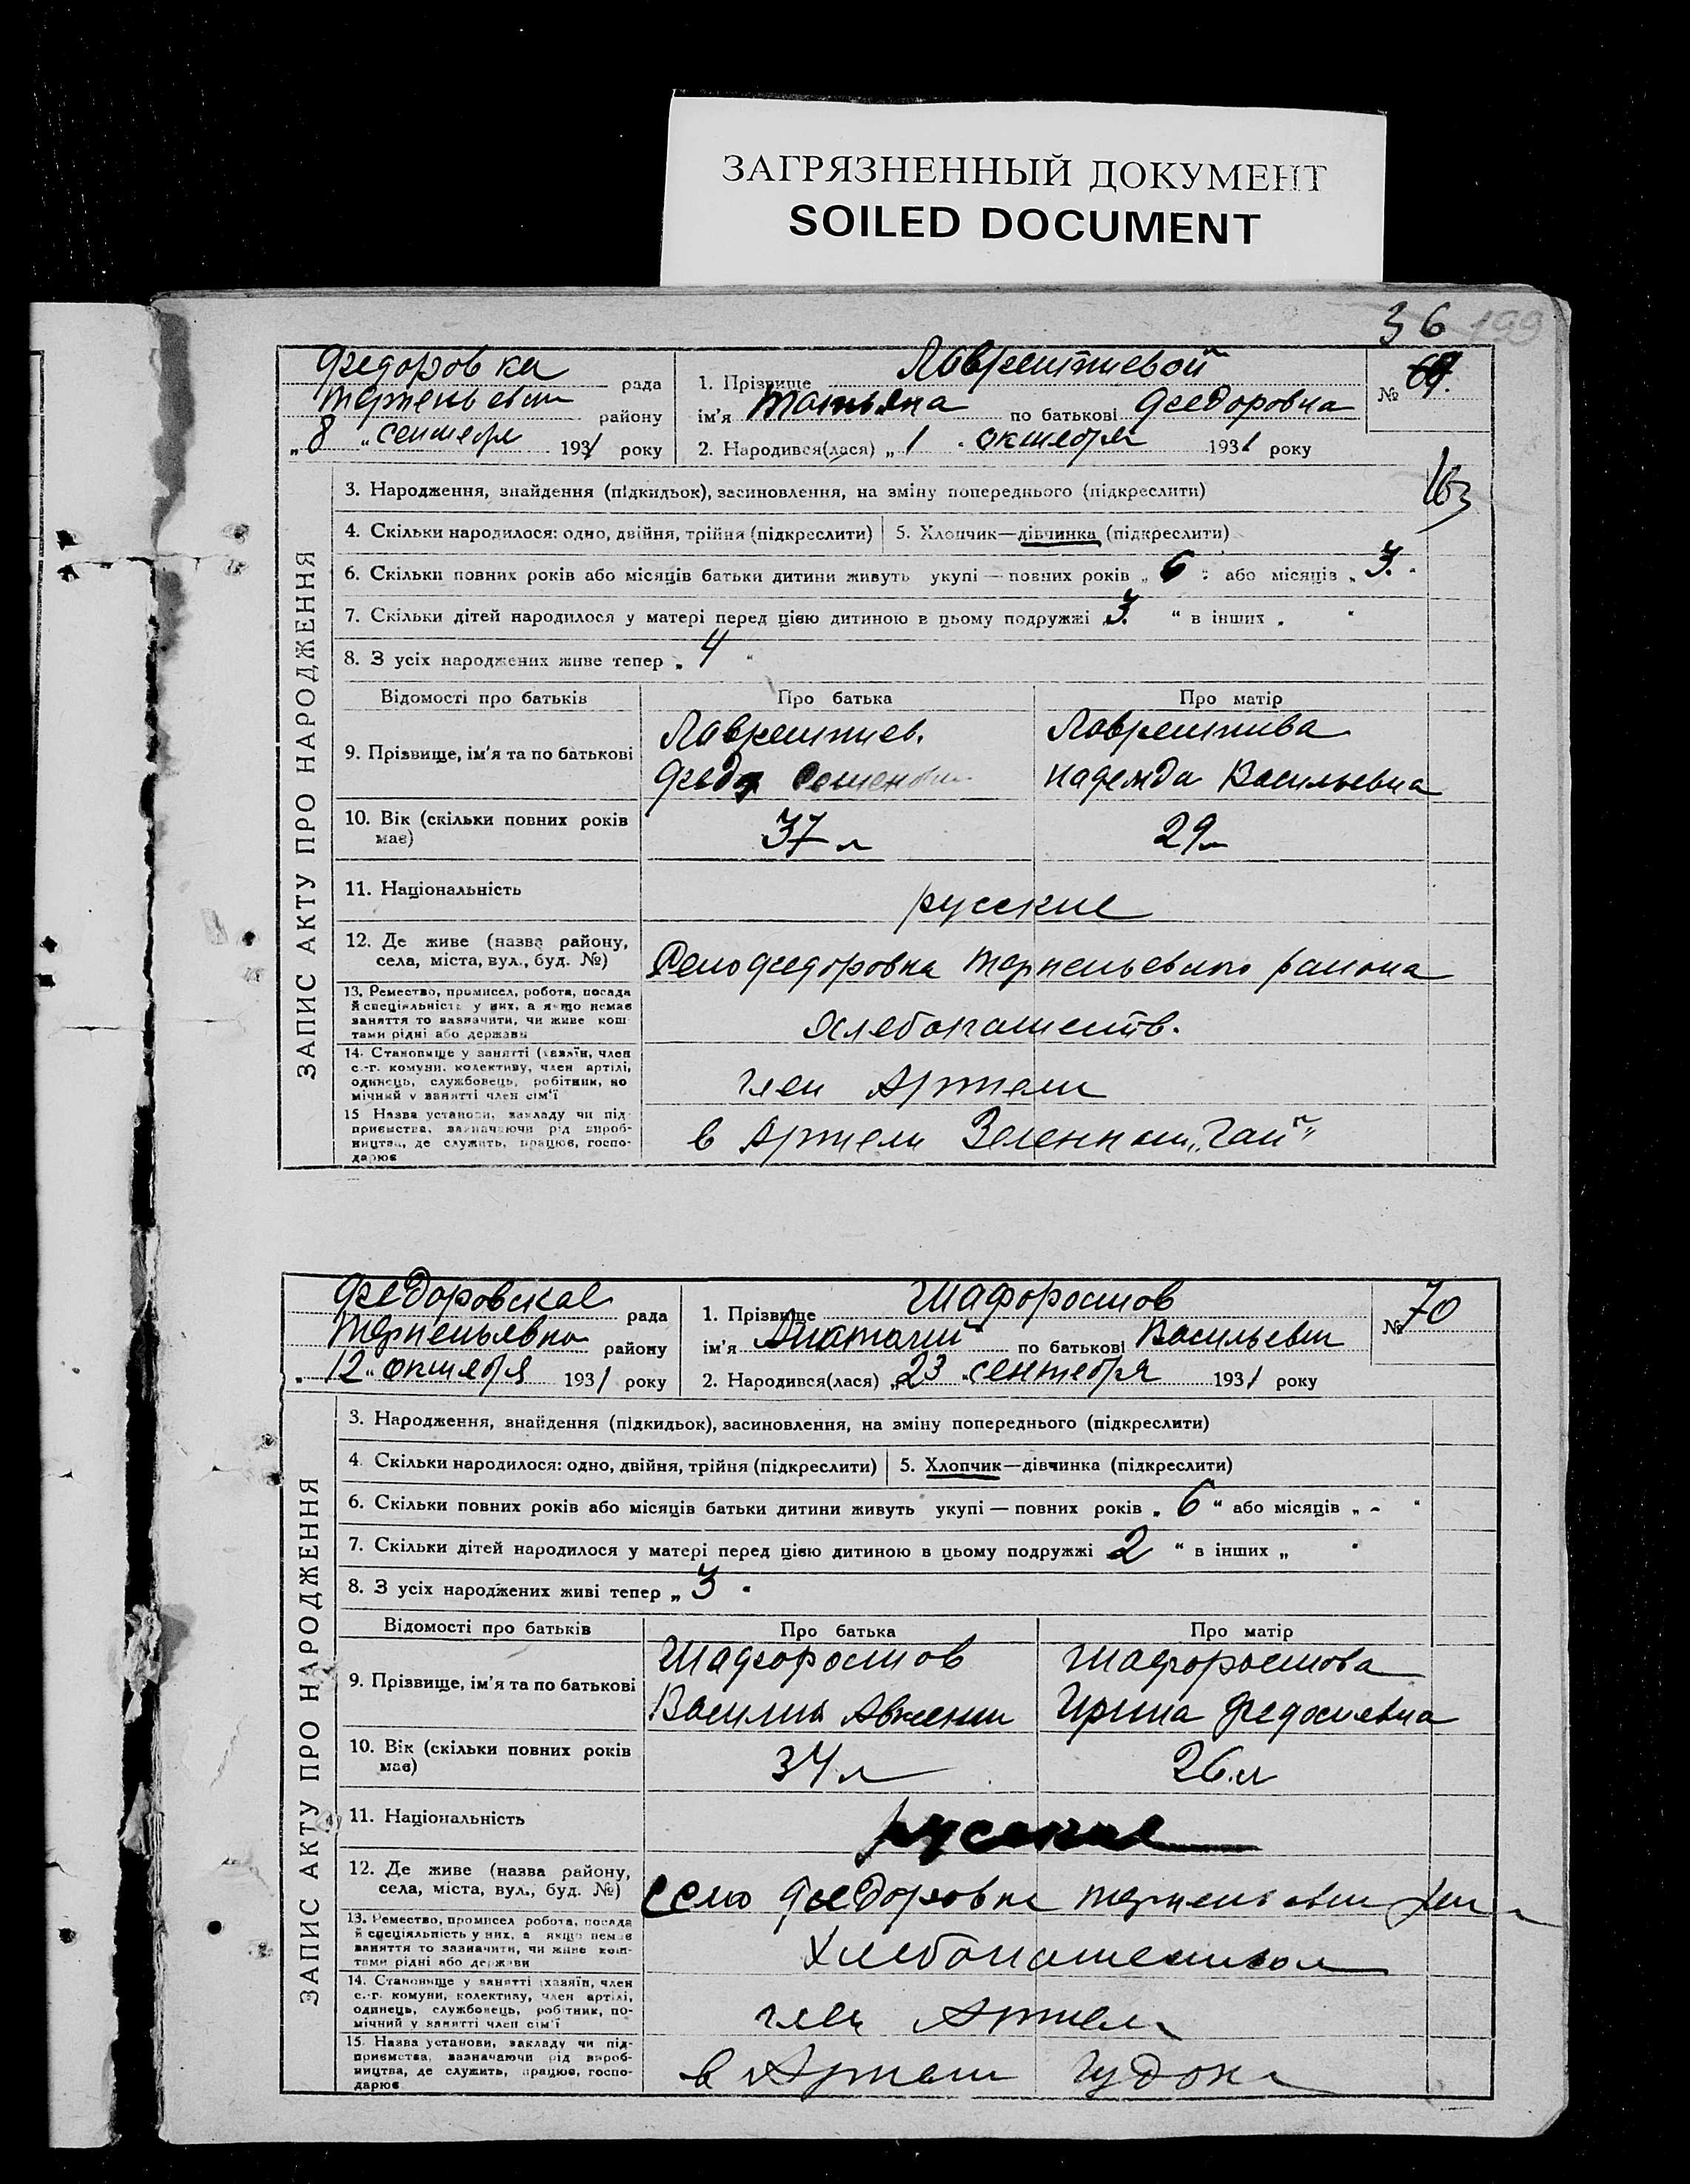 ЗАГРЯЗНЕННЫЙ ДОКУМЕНТ
SOILED DOCUMENT
36 199
Федоровка рада
района району
„8 „ сентября 1931 року
1. Прізвище Лаврентиевой
ім'я Татьяна по батькові Федоровна
2. Народився(лася) „1 „ октября 1931 року
№ 69.
163
ЗАПИС АКТУ ПРО НАРОДЖЕННЯ
3. Народження, знайдення (підкидьок), засиновлення, на зміну попереднього (підкреслити)
4. Скільки народилося: одно, двійня, трійня (підкреслити) 5. Хлопчик—дівчинка (підкреслити)
6. Скільки повних років або місяців батьки дитини живуть укупі — повних років „ 6 " або місяців „ 3. "
7. Скільки дітей народилося у матері перед цією дитиною в цьому подружжі 3. " в інших „ "
8. З усіх народжених живе тепер „ 4 "
Відомості про батьків Про батька Про матір
9. Прізвище, ім'я та по батькові
Лаврентиев. Лаврентива
Федор Семенович Надежда Васильевна
10. Вік (скільки повних років має) 37 л 29 л
11. Національність русские
12. Де живе (назва району, села, міста, вул., буд. №) Село Федоровка района
13. Ремество, промисел, робота, посада й спеціяльність у них, а якщо немає заняття то зазначити, чи живе коштами рідні або держави
Хлебопашеств.
14. Становище у занятті (хазяїн, член с.-г. комуни, колективу, член артілі, одинець, службовець, робітник, помічний у занятті член сім'ї
член Артели
15 Назва установи, закладу чи підприємства, зазначаючи рід виробництва, де служить, працює, господарює
в Артели „Гай"
Федоровское рада
району
„ 12 „ октября 1931 року
1. Прізвище Шафоростов
ім'я Анатолий по батькові Васильевич
2. Народився(лася) „23 „ сентября 1931 року
№ 70
ЗАПИС АКТУ ПРО НАРОДЖЕННЯ
3. Народження, знайдення (підкидьок), засиновлення, на зміну попереднього (підкреслити)
4. Скільки народилося: одно, двійня, трійня (підкреслити) 5. Хлопчик—дівчинка (підкреслити)
6. Скільки повних років або місяців батьки дитини живуть укупі — повних років „ 6 " або місяців „ - "
7. Скільки дітей народилося у матері перед цією дитиною в цьому подружжі 2 " в інших „ "
8. З усіх народжених живі тепер „ 3 "
Відомості про батьків Про батька Про матір
9. Прізвище, ім'я та по батькові
Шафоростов Шафоростова
Василий Ирина Федосиевна
10. Вік (скільки повних років має) 34 л 26 л
11. Національність русские
12. Де живе (назва району, села, міста, вул., буд. №) Село Федоровка
13. Ремество, промисел робота, посада й спеціяльність у них, а якщо немає заняття то зазначити, чи живе коштами рідні або держави
14. Становище у занятті (хазяїн, член с.-г. комуни, колективу, член артілі, одинець, службовець, робітник, помічний у занятті член сім'ї
член Артели
15. Назва установи, закладу чи підприємства, зазначаючи рід виробництва, де служить, працює, господарює
в Артели